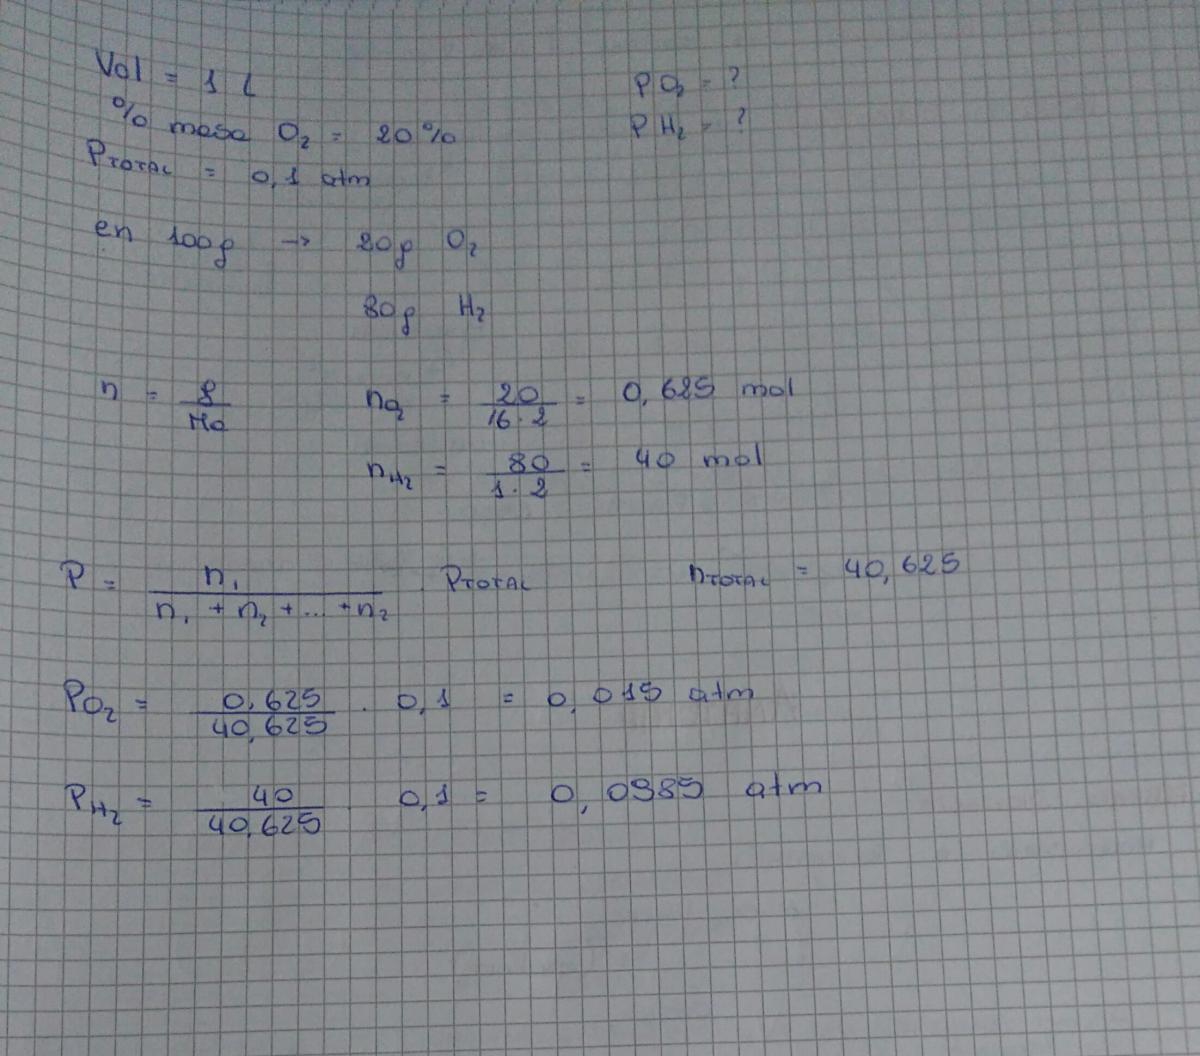 Vol = 1 L
PO₂ = ?
% masa O₂ = 20%
PH₂ = ?
PTOTAL = 0,1 atm
en 100g → 20g O₂
80g H₂
n = g/Ma nO₂ = 20/16·2 = 0,625 mol
nH₂ = 80/1·2 = 40 mol
P = n₁/n₁ + n₂ + ... + n₂ · PTOTAL nTOTAL = 40,625
PO₂ = 0,625/40,625 · 0,1 = 0,015 atm
PH₂ = 40/40,625 · 0,1 = 0,0985 atm